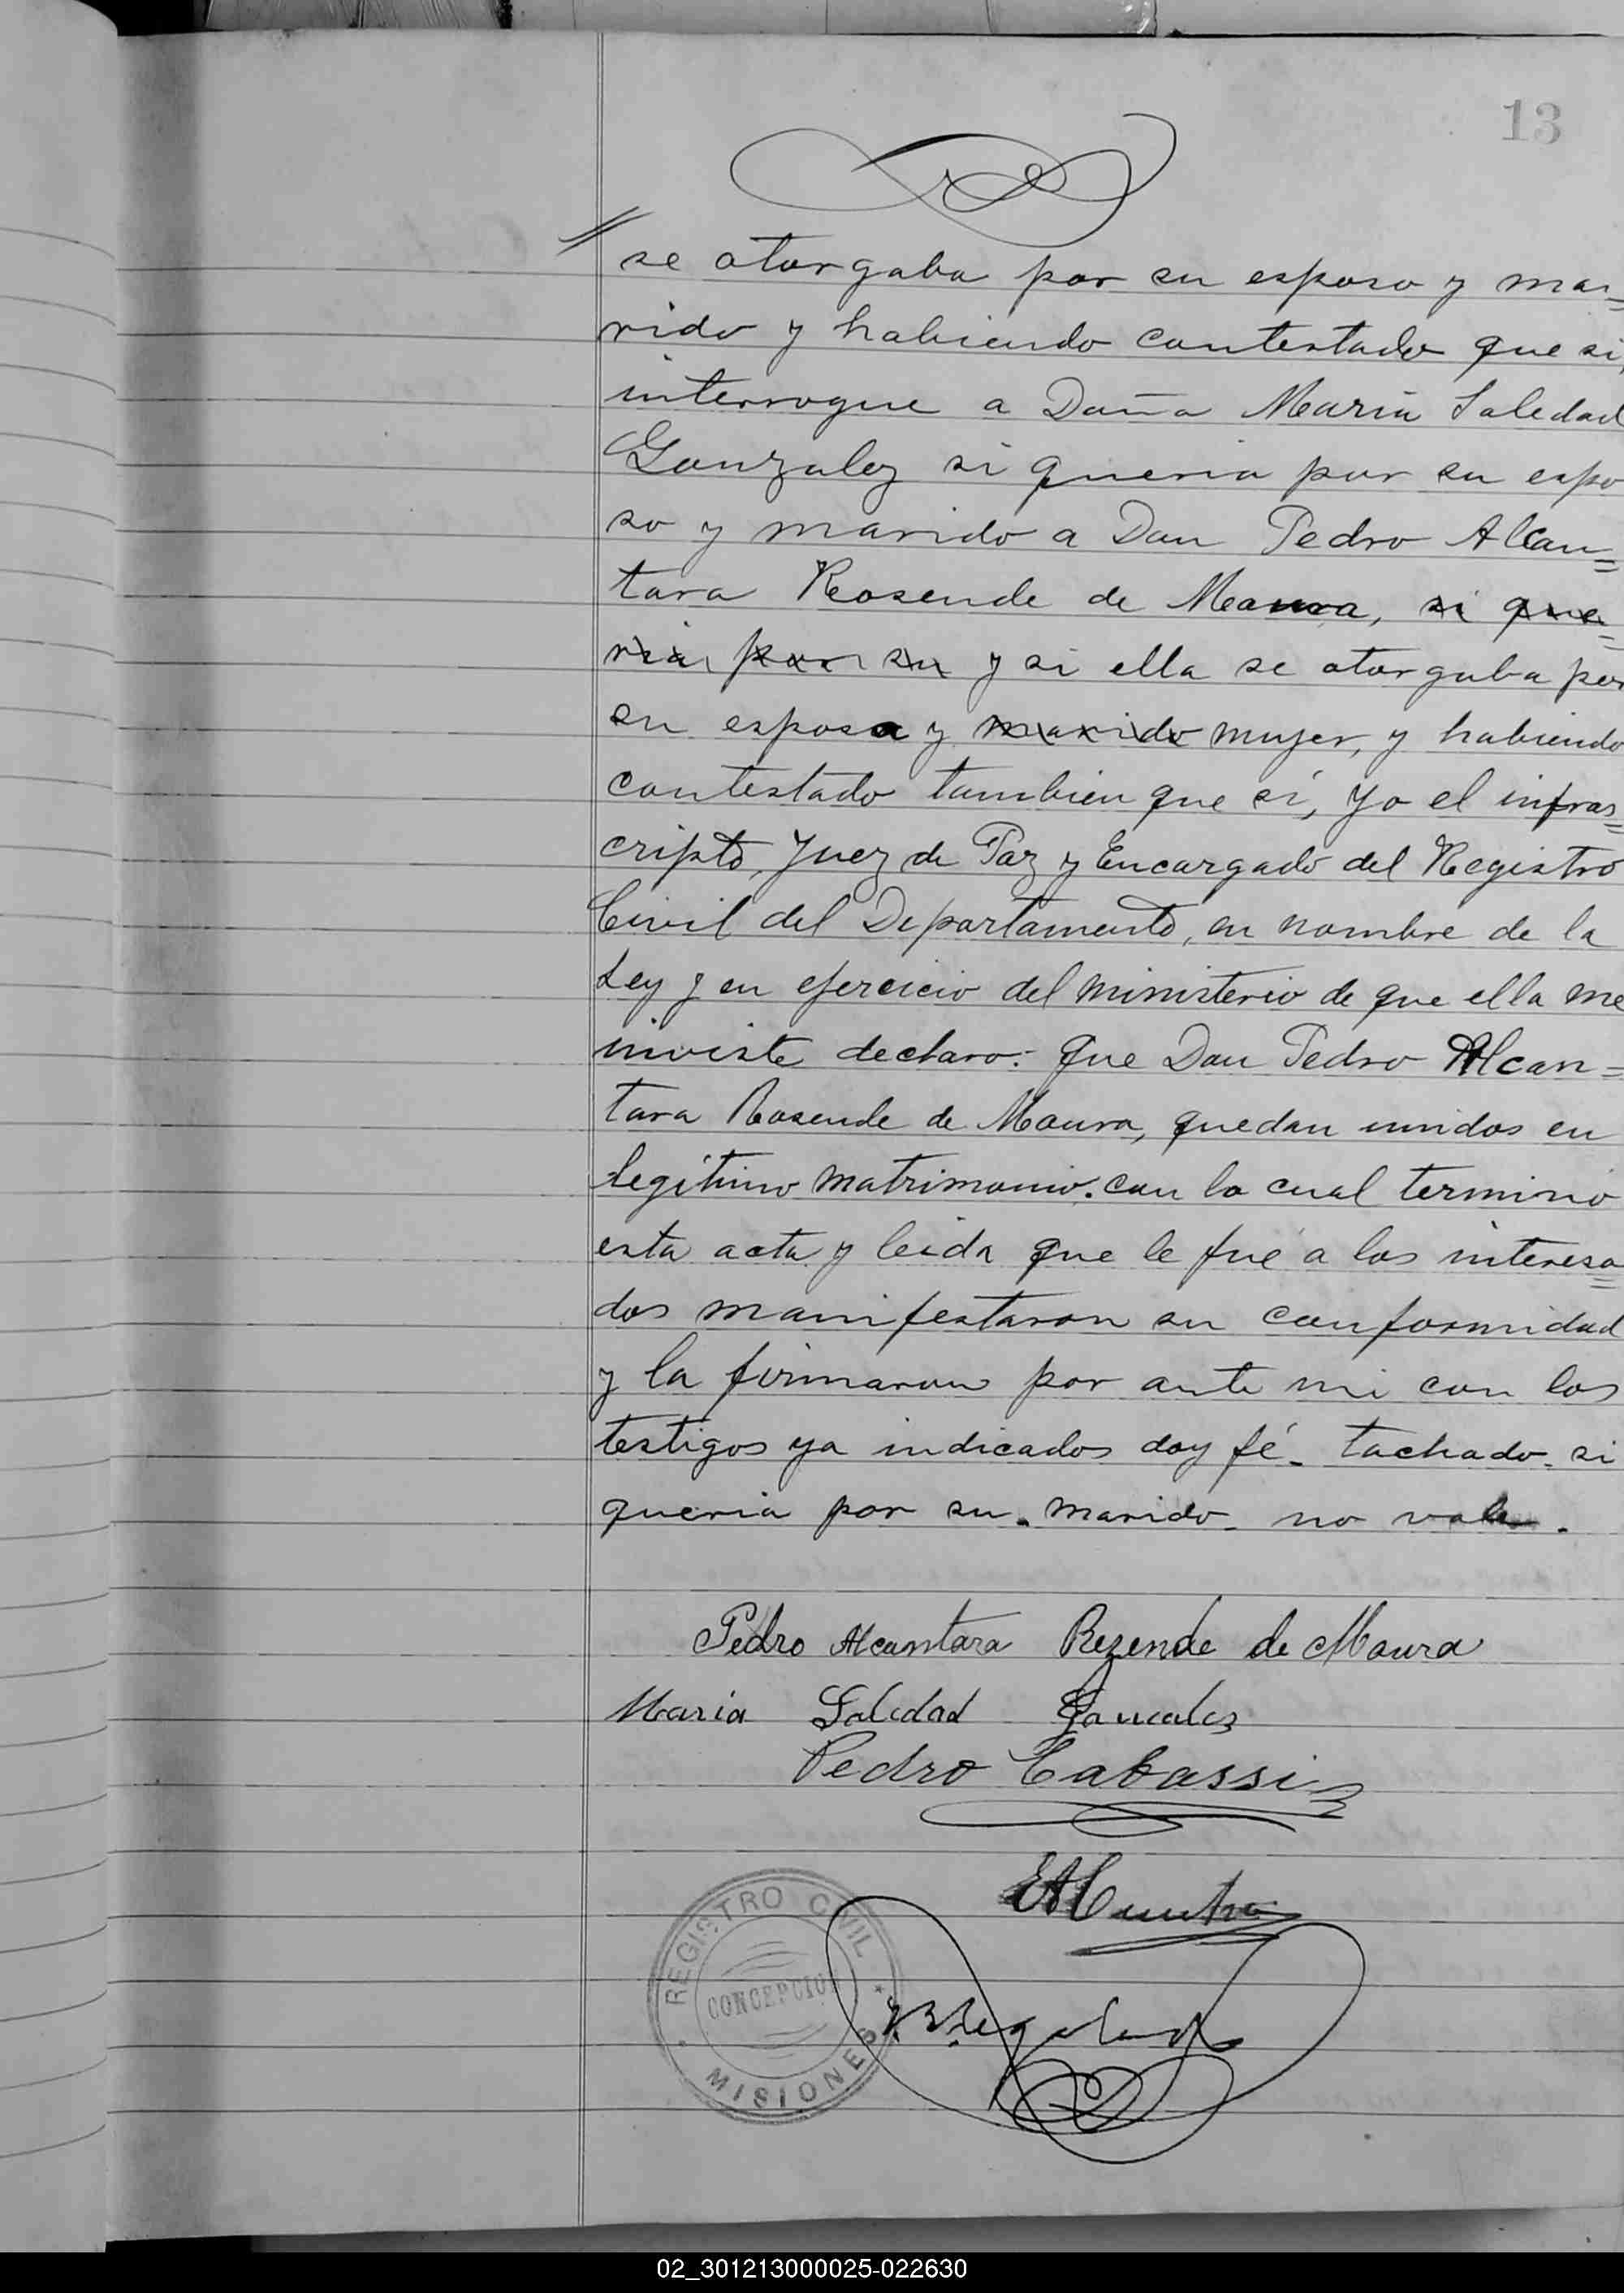 13
se otorgaba por su esposo y mar=
rido y habiendo contestado que si,
interrogue a Doña María Soledad
Gonzalez si queria por su espo
so y marido a Don Pedro Alcan=
tara Rosende de Moura, si que=
ria por su y si ella se otorgaba por
su esposa y marido mujer, y habiendo
contestado tambien que sí, yo el infras=
cripto, Juez de Paz y Encargado del Registro
Civil del Departamento, en nombre de la
Ley y en ejercicio del ministerio de que ella me
inviste declaro: que Don Pedro Alcan=
tara Rosende de Moura, quedan unidos en
legítimo matrimonio. con lo cual termino
esta acta y leida que le fué a los interesa=
dos manifestaron su conformidad
y la firmaron por ante mi con los
testigos ya indicados doy fé. tachado. si
queria por su. marido. no vale.
Pedro Alcantara Rezende de Moura
Maria Soledad Gonzales
Pedro Cabassi
REGISTRO CIVIL
CONCEPCION
MISIONES
02_301213000025-022630